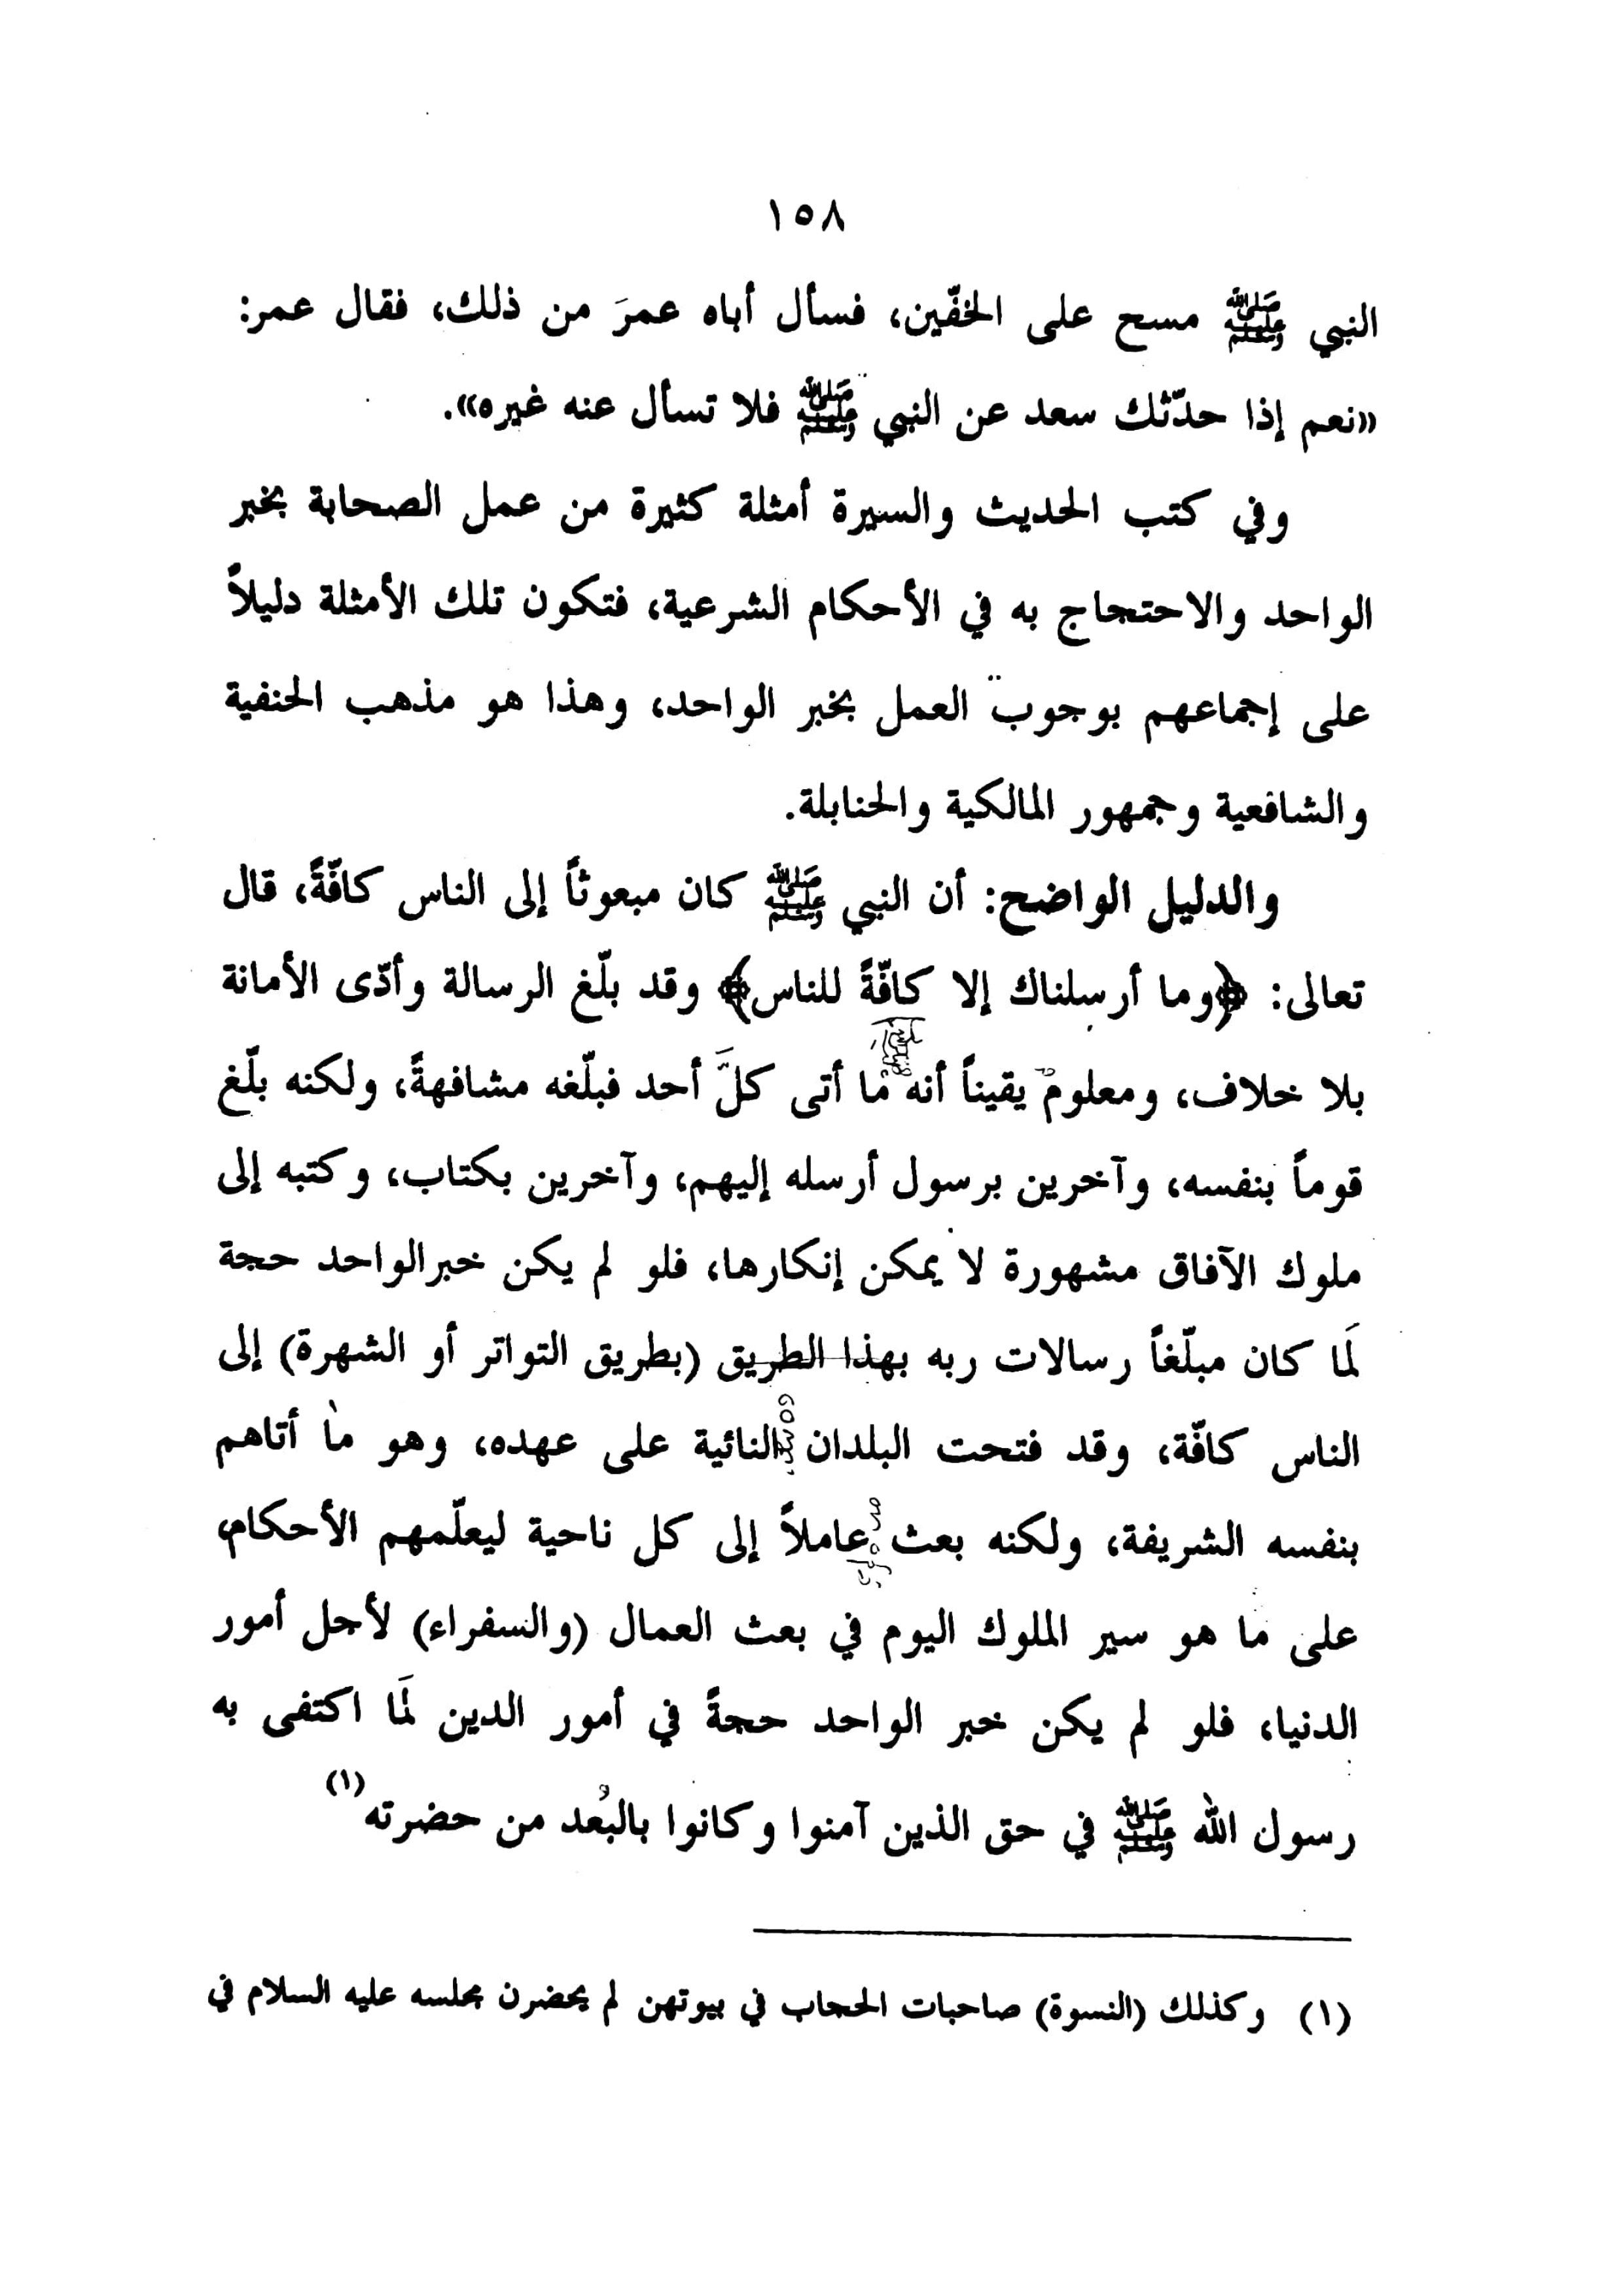 ١٥٨
النبي ﷺ مسح على الخفّين، فسأل أباه عمرَ من ذلك، فقال عمر:
«نعم إذا حدّثك سعد عن النبي ﷺ فلا تسأل عنه غيره».
وفي كتب الحديث والسيرة أمثلة كثيرة من عمل الصحابة بخبر
الواحد والاحتجاج به في الأحكام الشرعية، فتكون تلك الأمثلة دليلاً
على إجماعهم بوجوب العمل بخبر الواحد، وهذا هو مذهب الحنفية
والشافعية وجمهور المالكية والحنابلة.
والدليل الواضح: أن النبي ﷺ كان مبعوثاً إلى الناس كافّةً، قال
تعالى: ﴿وما أرسلناك إلا كافّةً للناس﴾ وقد بلّغ الرسالة وأدّى الأمانة
بلا خلاف، ومعلوم يقيناً أنه ما أتى كلَّ أحد فبلّغه مشافهةً، ولكنه بلّغ
قوماً بنفسه، وآخرين برسول أرسله إليهم، وآخرين بكتاب، وكتبه إلى
ملوك الآفاق مشهورة لا يمكن إنكارها، فلو لم يكن خبرالواحد حجة
لَما كان مبلّغاً رسالات ربه بهذا الطريق (بطريق التواتر أو الشهرة) إلى
الناس كافّة، وقد فتحت البلدان النائية على عهده، وهو ما أتاهم
بنفسه الشريفة، ولكنه بعث عاملاً إلى كل ناحية ليعلّمهم الأحكام،
على ما هو سير الملوك اليوم في بعث العمال (والسفراء) لأجل أمور
الدنيا، فلو لم يكن خبر الواحد حجةً في أمور الدين لَما اكتفى به
رسول الله ﷺ في حق الذين آمنوا وكانوا بالبُعد من حضرته(١)
(١) وكذلك (النسوة) صاحبات الحجاب في بيوتهن لم يحضرن مجلسه عليه السلام في